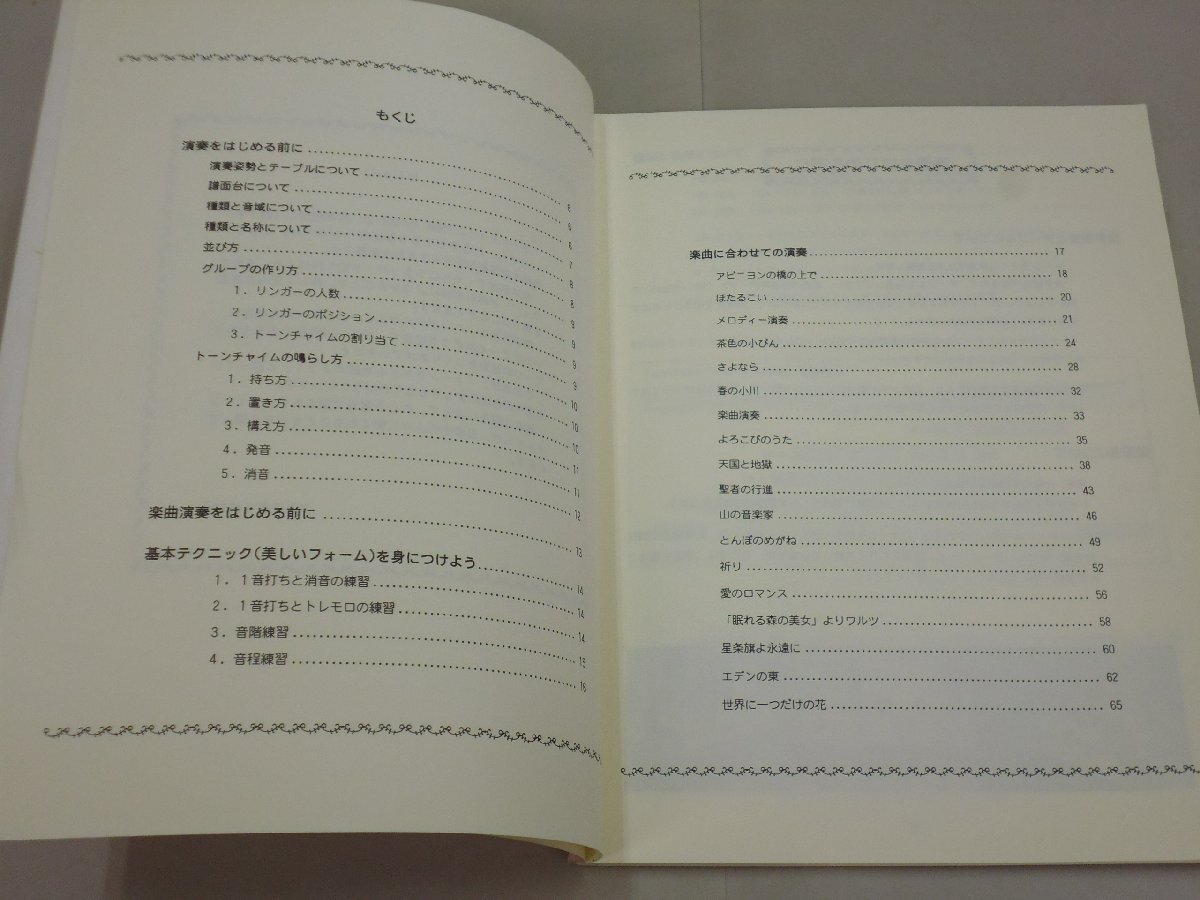 もくじ
演奏をはじめる前に
演奏姿勢とテーブルについて 6
譜面台について 6
種類と音域について 7
種類と名称について 8
並び方 8
グループの作り方 9
1．リンガーの人数 9
2．リンガーのポジション 9
3．トーンチャイムの割り当て 9
トーンチャイムの鳴らし方 10
1．持ち方 10
2．置き方 10
3．構え方 11
4．発音 11
5．消音 12
楽曲演奏をはじめる前に 13
基本テクニック（美しいフォーム）を身につけよう 14
1．1音打ちと消音の練習 14
2．1音打ちとトレモロの練習 14
3．音階練習 15
4．音程練習 16
楽曲に合わせての演奏 17
アビニヨンの橋の上で 18
ほたるこい 20
メロディー演奏 21
茶色の小びん 24
さよなら 28
春の小川 32
楽曲演奏 33
よろこびのうた 35
天国と地獄 38
聖者の行進 43
山の音楽家 46
とんぼのめがね 49
祈り 52
愛のロマンス 56
「眠れる森の美女」よりワルツ 58
星条旗よ永遠に 60
エデンの東 62
世界に一つだけの花 65